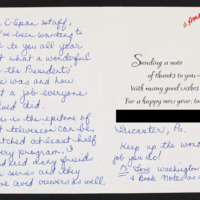 C-Span staff,
've been wanting to
to you all year
t what a wonderful
the Presidents'
e was and how
t a job everyone
d did.
is the epitome of
t television can be,
tched at least half
ery program. I
many friends
series and they
avid viewers as well.
Sending a note
of thanks to you—
With many good wishes
For a happy new year, too
Pa.
Keep up the won
job you do!
P.S. Love Washington
& Book Notes as